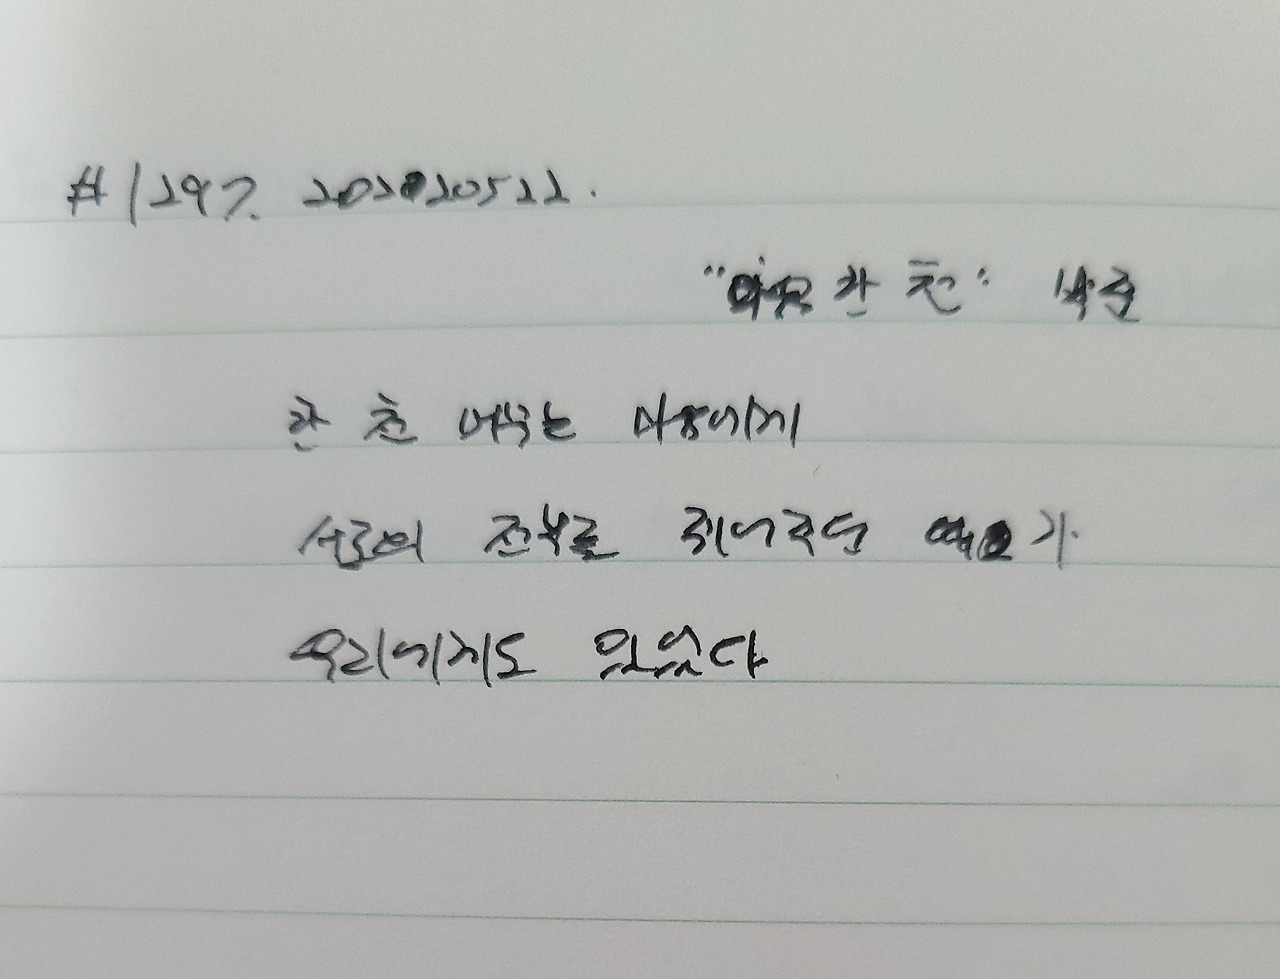 #1297. 20220522.
"마음 한 철" 박준
한 철 머무는 마음에게
서로의 전부를 쥐어주던
우리에게도 있었다